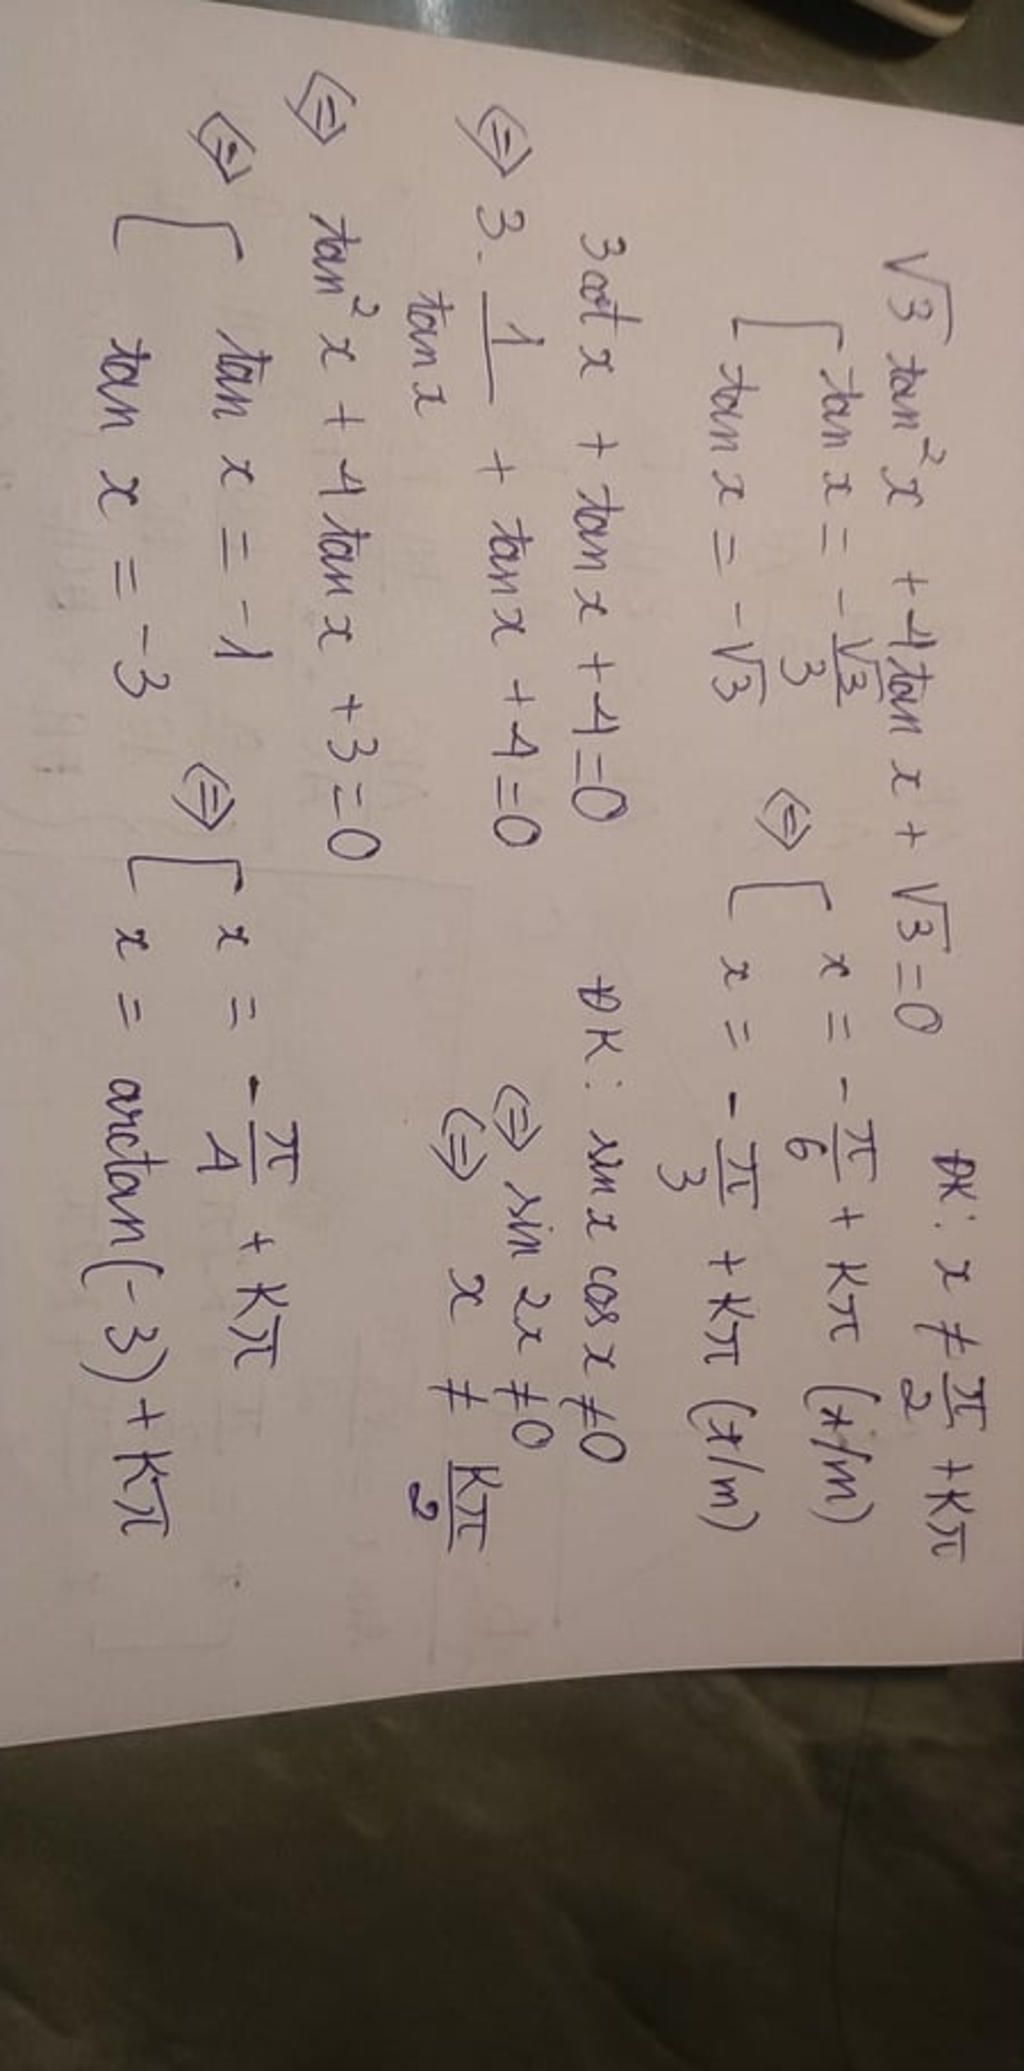 √3 tan²x + 4tan x + √3 = 0 ĐK: x ≠ π/2 + kπ
[ tan x = -√3/3 ⇔ [ x = -π/6 + kπ (t/m)
[ tan x = -√3 [ x = -π/3 + kπ (t/m)
3cot x + tan x + 4 = 0 ĐK: sin x cos x ≠ 0
⇔ 3. 1/tan x + tan x + 4 = 0 ⇔ sin 2x ≠ 0
⇔ x ≠ kπ/2
⇔ tan²x + 4 tan x + 3 = 0
⇔ [ tan x = -1 ⇔ [ x = -π/4 + kπ
[ tan x = -3 [ x = arctan(-3) + kπ